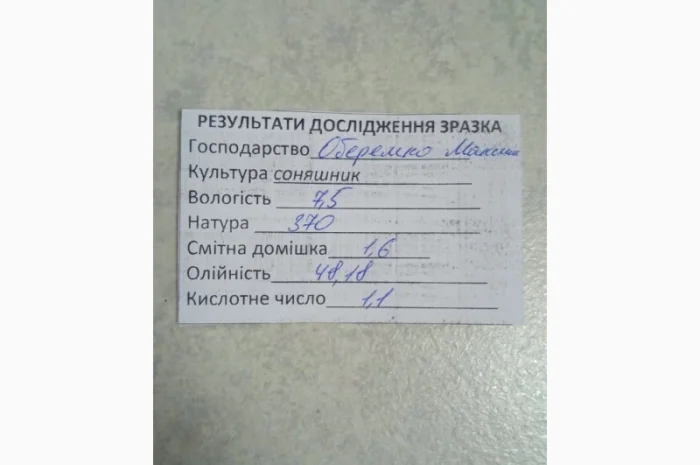 РЕЗУЛЬТАТИ ДОСЛІДЖЕННЯ ЗРАЗКА
Господарство Оберемко
Культура соняшник
Вологість 7,5
Натура 370
Смітна домішка 1,6
Олійність 48,18
Кислотне число 1,1